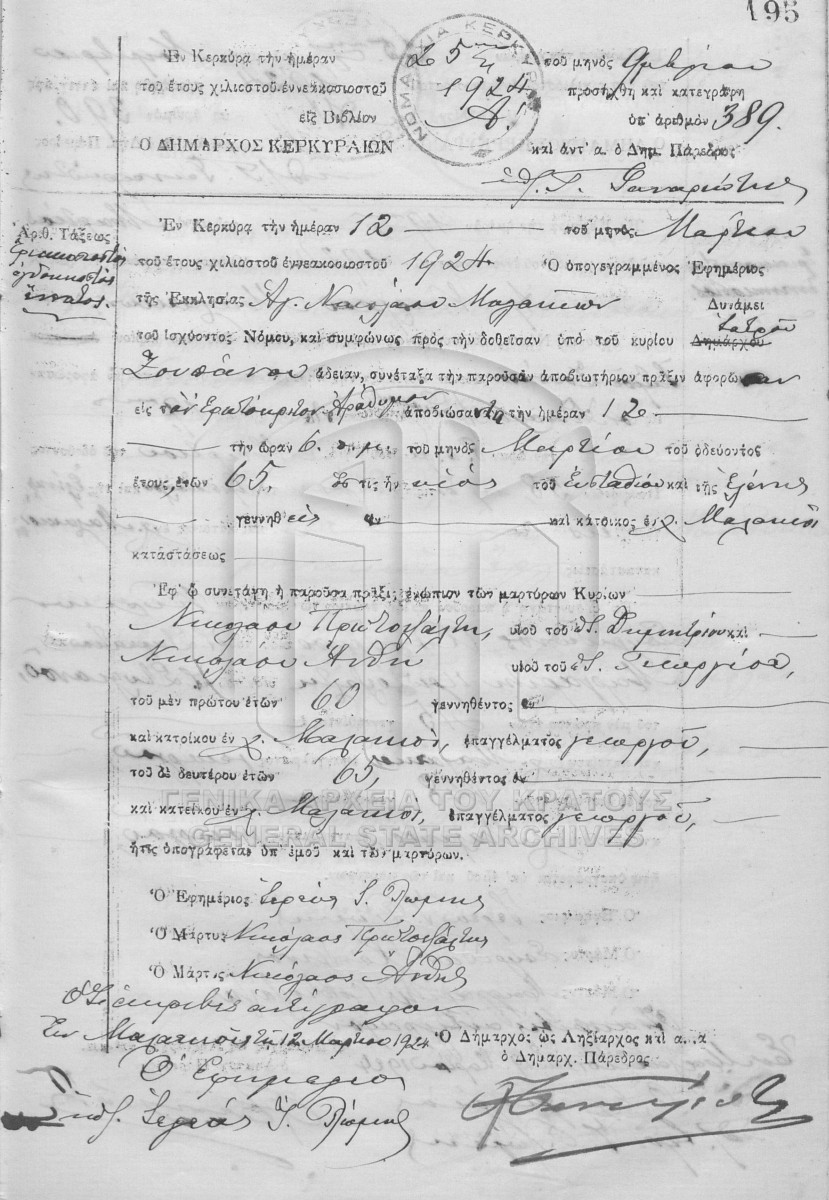 195
Ἐν Κερκύρᾳ τὴν ἡμέραν 25 τοῦ μηνὸς
τοῦ ἔτους χιλιοστοῦ ἐννεακοσιοστοῦ 1924 προσήχθη καὶ κατεγράφη
εἰς Βιβλίον Α! ὑπ' ἀριθμὸν 389.
Ο ΔΗΜΑΡΧΟΣ ΚΕΡΚΥΡΑΙΩΝ καὶ ἀντ' α. ὁ Δημ. Πάρεδρος
ΝΟΜΑΡΧΙΑ ΚΕΡΚΥΡΑΣ
Ἀριθ. Τάξεως
τριακοσιοστὸς
ὀγδοηκοστὸς
ἔννατος.
Ἐν Κερκύρᾳ τὴν ἡμέραν 12 τοῦ μηνὸς Μαρτίου
τοῦ ἔτους χιλιοστοῦ ἐννεακοσιοστοῦ 1924 Ὁ ὑπογεγραμμένος Ἐφημέριος
τῆς Ἐκκλησίας Ἁγ. Νικολάου Μαλακιῶν Δυνάμει
τοῦ ἰσχύοντος Νόμου, καὶ συμφώνως πρὸς τὴν δοθεῖσαν ὑπὸ τοῦ κυρίου Δημάρχου ἰατροῦ
ἄδειαν, συνέταξα τὴν παροῦσαν ἀποβιωτήριον πρᾶξιν ἀφορῶσαν
εἰς τὸν ἀποβιώσαντα τὴν ἡμέραν 12
τὴν ὥραν 6. π.μ. τοῦ μηνὸς Μαρτίου τοῦ ὁδεύοντος
ἔτους, ἐτῶν 65, ὅστις ἦν υἱὸς τοῦ Εὐσταθίου καὶ τῆς Ἑλένης
γεννηθεὶς ἐν καὶ κάτοικος ἐν χ. Μαλακιοὶ
καταστάσεως
Ἐφ' ᾧ συνετάγη ἡ παροῦσα πρᾶξις ἐνώπιον τῶν μαρτύρων Κυρίων
Νικολάου Πρωτοψάλτη, υἱοῦ τοῦ Δημητρίου καὶ
Νικολάου Ἀνθῆ υἱοῦ τοῦ Γεωργίου,
τοῦ μὲν πρώτου ἐτῶν 60 γεννηθέντος ἐν
καὶ κατοίκου ἐν χ. Μαλακιοὶ, ἐπαγγέλματος γεωργοῦ,
τοῦ δὲ δευτέρου ἐτῶν 65, γεννηθέντος ἐν
καὶ κατοίκου ἐν χ. Μαλακιοὶ, ἐπαγγέλματος γεωργοῦ,
ΓΕΝΙΚΑ ΑΡΧΕΙΑ ΤΟΥ ΚΡΑΤΟΥΣ
GENERAL STATE ARCHIVES
ἥτις ὑπογράφεται ὑπ' ἐμοῦ καὶ τῶν μαρτύρων.
Ὁ Ἐφημέριος Ἱερεὺς
Ὁ Μάρτυς Νικόλαος Πρωτοψάλτης
Ὁ Μάρτυς Νικόλαος Ἀνθῆς
ἀκριβὲς ἀντίγραφον
Ἐν Μαλακιοῖς τῇ 12 Μαρτίου 1924
Ὁ Δήμαρχος ὡς Ληξίαρχος καὶ α..α
ὁ Δημαρχ. Πάρεδρος
Ὁ Ἐφημέριος
Ἱερεὺς